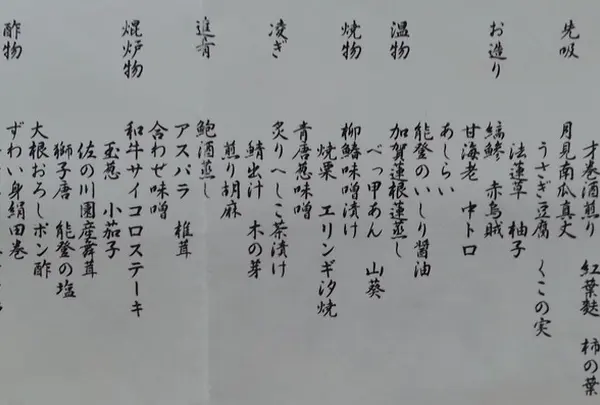 才巻酒煎り 紅葉麩 柿の葉
先吸
月見南瓜真丈
うさぎ豆腐 くこの実
法蓮草 柚子
お造り
縞鯵 赤烏賊
甘海老 中トロ
あしらい
能登のいしり醤油
温物
加賀蓮根蓮蒸し
べっ甲あん 山葵
焼物
柳鰆味噌漬け
焼栗 エリンギ汐焼
青唐葱味噌
凌ぎ
炙りへしこ茶漬け
鯖出汁 木の芽
煎り胡麻
進肴
鮑酒蒸し
アスパラ 椎茸
合わせ味噌
焜炉物
和牛サイコロステーキ
玉葱 小茄子
佐の川園産舞茸
獅子唐 能登の塩
大根おろしポン酢
酢物
ずわい身絹田巻